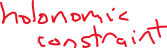 holonomic
constraint